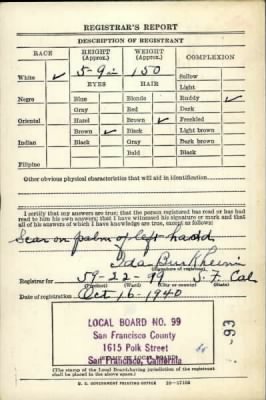 REGISTRAR'S REPORT
DESCRIPTION OF REGISTRANT
RACE HEIGHT (Approx.) WEIGHT (Approx.) COMPLEXION
White ✓ 5-9 in 150 Sallow
EYES HAIR Light
Negro Blue Blonde Ruddy ✓
Gray Red Dark
Oriental Hazel Brown ✓ Freckled
Brown ✓ Black Light brown
Indian Black Gray Dark brown
Bald Black
Filipino
Other obvious physical characteristics that will aid in identification
I certify that my answers are true; that the person registered has read or has had
read to him his own answers; that I have witnessed his signature or mark and that
all of his answers of which I have knowledge are true, except as follows:
Scar on palm of left hand
Ida
(Signature of registrar)
Registrar for 59-22-99 S. F. Cal
(Precinct) (Ward) (City or county) (State)
Date of registration Oct 16-1940
LOCAL BOARD NO. 99
San Francisco County
1615 Polk Street
San Francisco, California
93
(The stamp of the Local Board having jurisdiction of the registrant
shall be placed in the above space.)
U. S. GOVERNMENT PRINTING OFFICE 16-17105